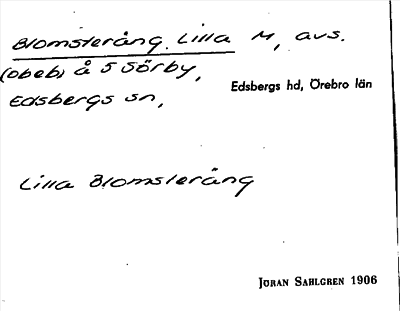 Blomsteräng, Lilla M, avs.
(obeb) å S Sörby,
Edsbergs sn,
Edsbergs hd, Örebro län
Lilla Blomsteräng
Jöran Sahlgren 1906